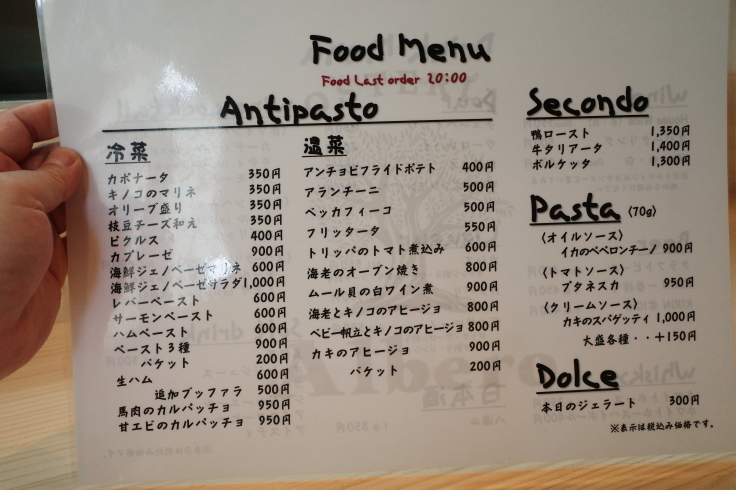 Food Menu
Food Last order 20:00
Antipasto
冷菜
カポナータ 350円
キノコのマリネ 350円
オリーブ盛り 350円
枝豆チーズ和え 350円
ピクルス 400円
カプレーゼ 900円
海鮮ジェノベーゼマリネ 600円
海鮮ジェノベーゼサラダ 1,000円
レバーペースト 600円
サーモンペースト 600円
ハムペースト 600円
ペースト3種 900円
バケット 200円
生ハム 600円
追加ブッファラ 500円
馬肉のカルパッチョ 950円
甘エビのカルパッチョ 950円
温菜
アンチョビフライドポテト 400円
アランチーニ 500円
ペッカフィーコ 500円
フリッタータ 550円
トリッパのトマト煮込み 600円
海老のオーブン焼き 800円
ムール貝の白ワイン煮 900円
海老とキノコのアヒージョ 800円
ベビー帆立とキノコのアヒージョ 800円
カキのアヒージョ 900円
バケット 200円
Secondo
鴨ロースト 1,350円
牛タリアータ 1,400円
ポルケッタ 1,300円
Pasta (70g)
〈オイルソース〉
イカのペペロンチーノ 900円
〈トマトソース〉
プタネスカ 950円
〈クリームソース〉
カキのスパゲッティ 1,000円
大盛各種・・+150円
Dolce
本日のジェラート 300円
※表示は税込み価格です。